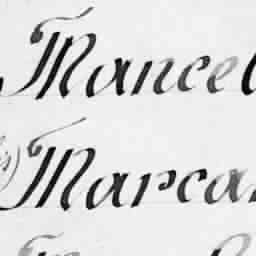 Mancel
Marca